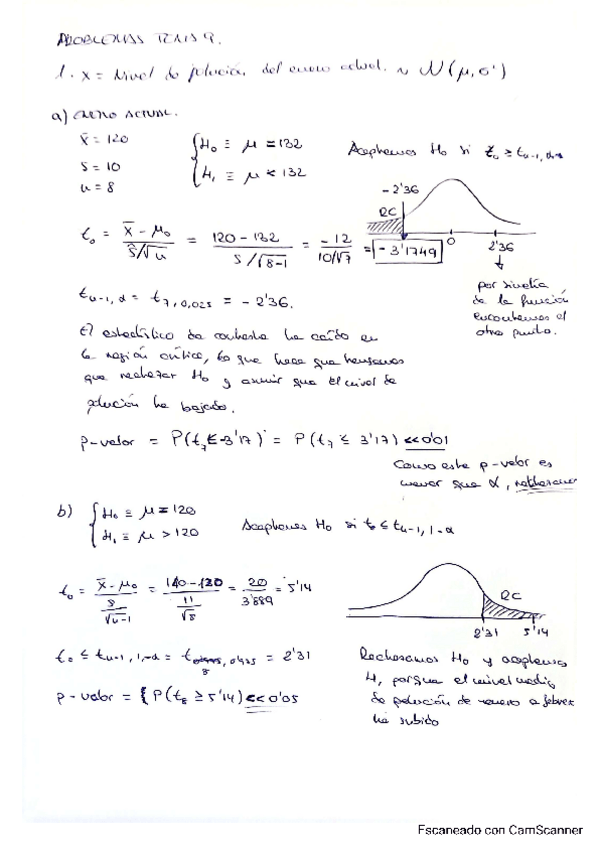 PROBLEMAS TEMA 9.
1. X = Nivel de polución del enero actual. ~ N(μ, σ)
a) ENERO ACTUAL.
x̄ = 120
S = 10
n = 8
H₀ ≡ μ = 132
H₁ ≡ μ < 132
Aceptamos H₀ si t₀ ≥ tₙ₋₁, α
-2'36
RC
0
2'36
t₀ = (x̄ - μ₀)/(S/√n) = (120 - 132)/(S/√(8-1)) = -12/(10/√7) = -3'1749
por simetría
de la función
encontramos el
otro punto.
tₙ₋₁, α = t₇, 0,025 = -2'36.
El estadístico de contraste ha caído en
la región crítica, lo que hace que tengamos
que rechazar H₀ y asumir que el nivel de
polución ha bajado.
p-valor = P(t₇ ≤ -3'17) = P(t₇ ≤ 3'17) << 0'01
Como este p-valor es
menor que α, rechazamos
b) H₀ ≡ μ = 120
H₁ ≡ μ > 120
Aceptamos H₀ si t₀ ≤ tₙ₋₁, 1-α
t₀ = (x̄ - μ₀)/(S/√(n-1)) = (140 - 120)/(11/√8) = 20/3'889 = 5'14
RC
2'31
5'14
t₀ ≤ tₙ₋₁, 1-α = t 8, 0'975 = 2'31
p-valor = P(t₈ ≥ 5'14) << 0'05
Rechazamos H₀ y aceptamos
H₁ porque el nivel medio
de polución de enero a febrer
ha subido
Escaneado con CamScanner